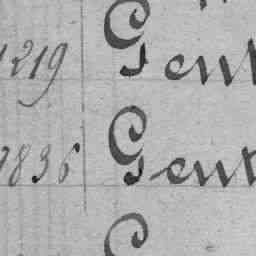 1219 Gent
1836 Gent
G